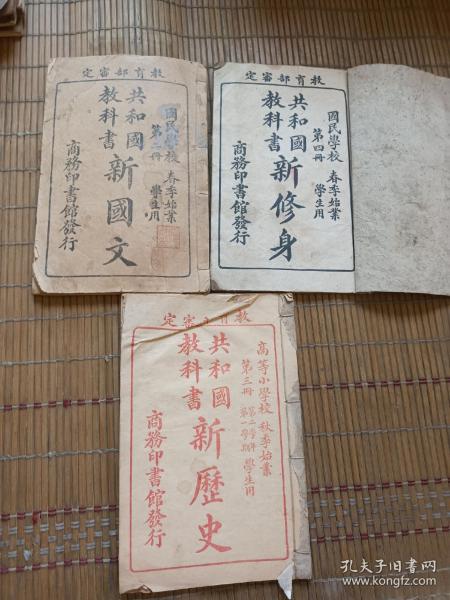 教育部審定
國民學校 春季始業
第二冊 學生用
共和國
教科書
新國文
商務印書館發行
教育部審定
國民學校 春季始業
第四冊 學生用
共和國
教科書
新修身
商務印書館發行
教育 審定
高等小學校 秋季始業
第三冊 第二學年 第一學期 學生用
共和國
教科書
新歷史
商務印書館發行
孔夫子旧书网
www.kongfz.com